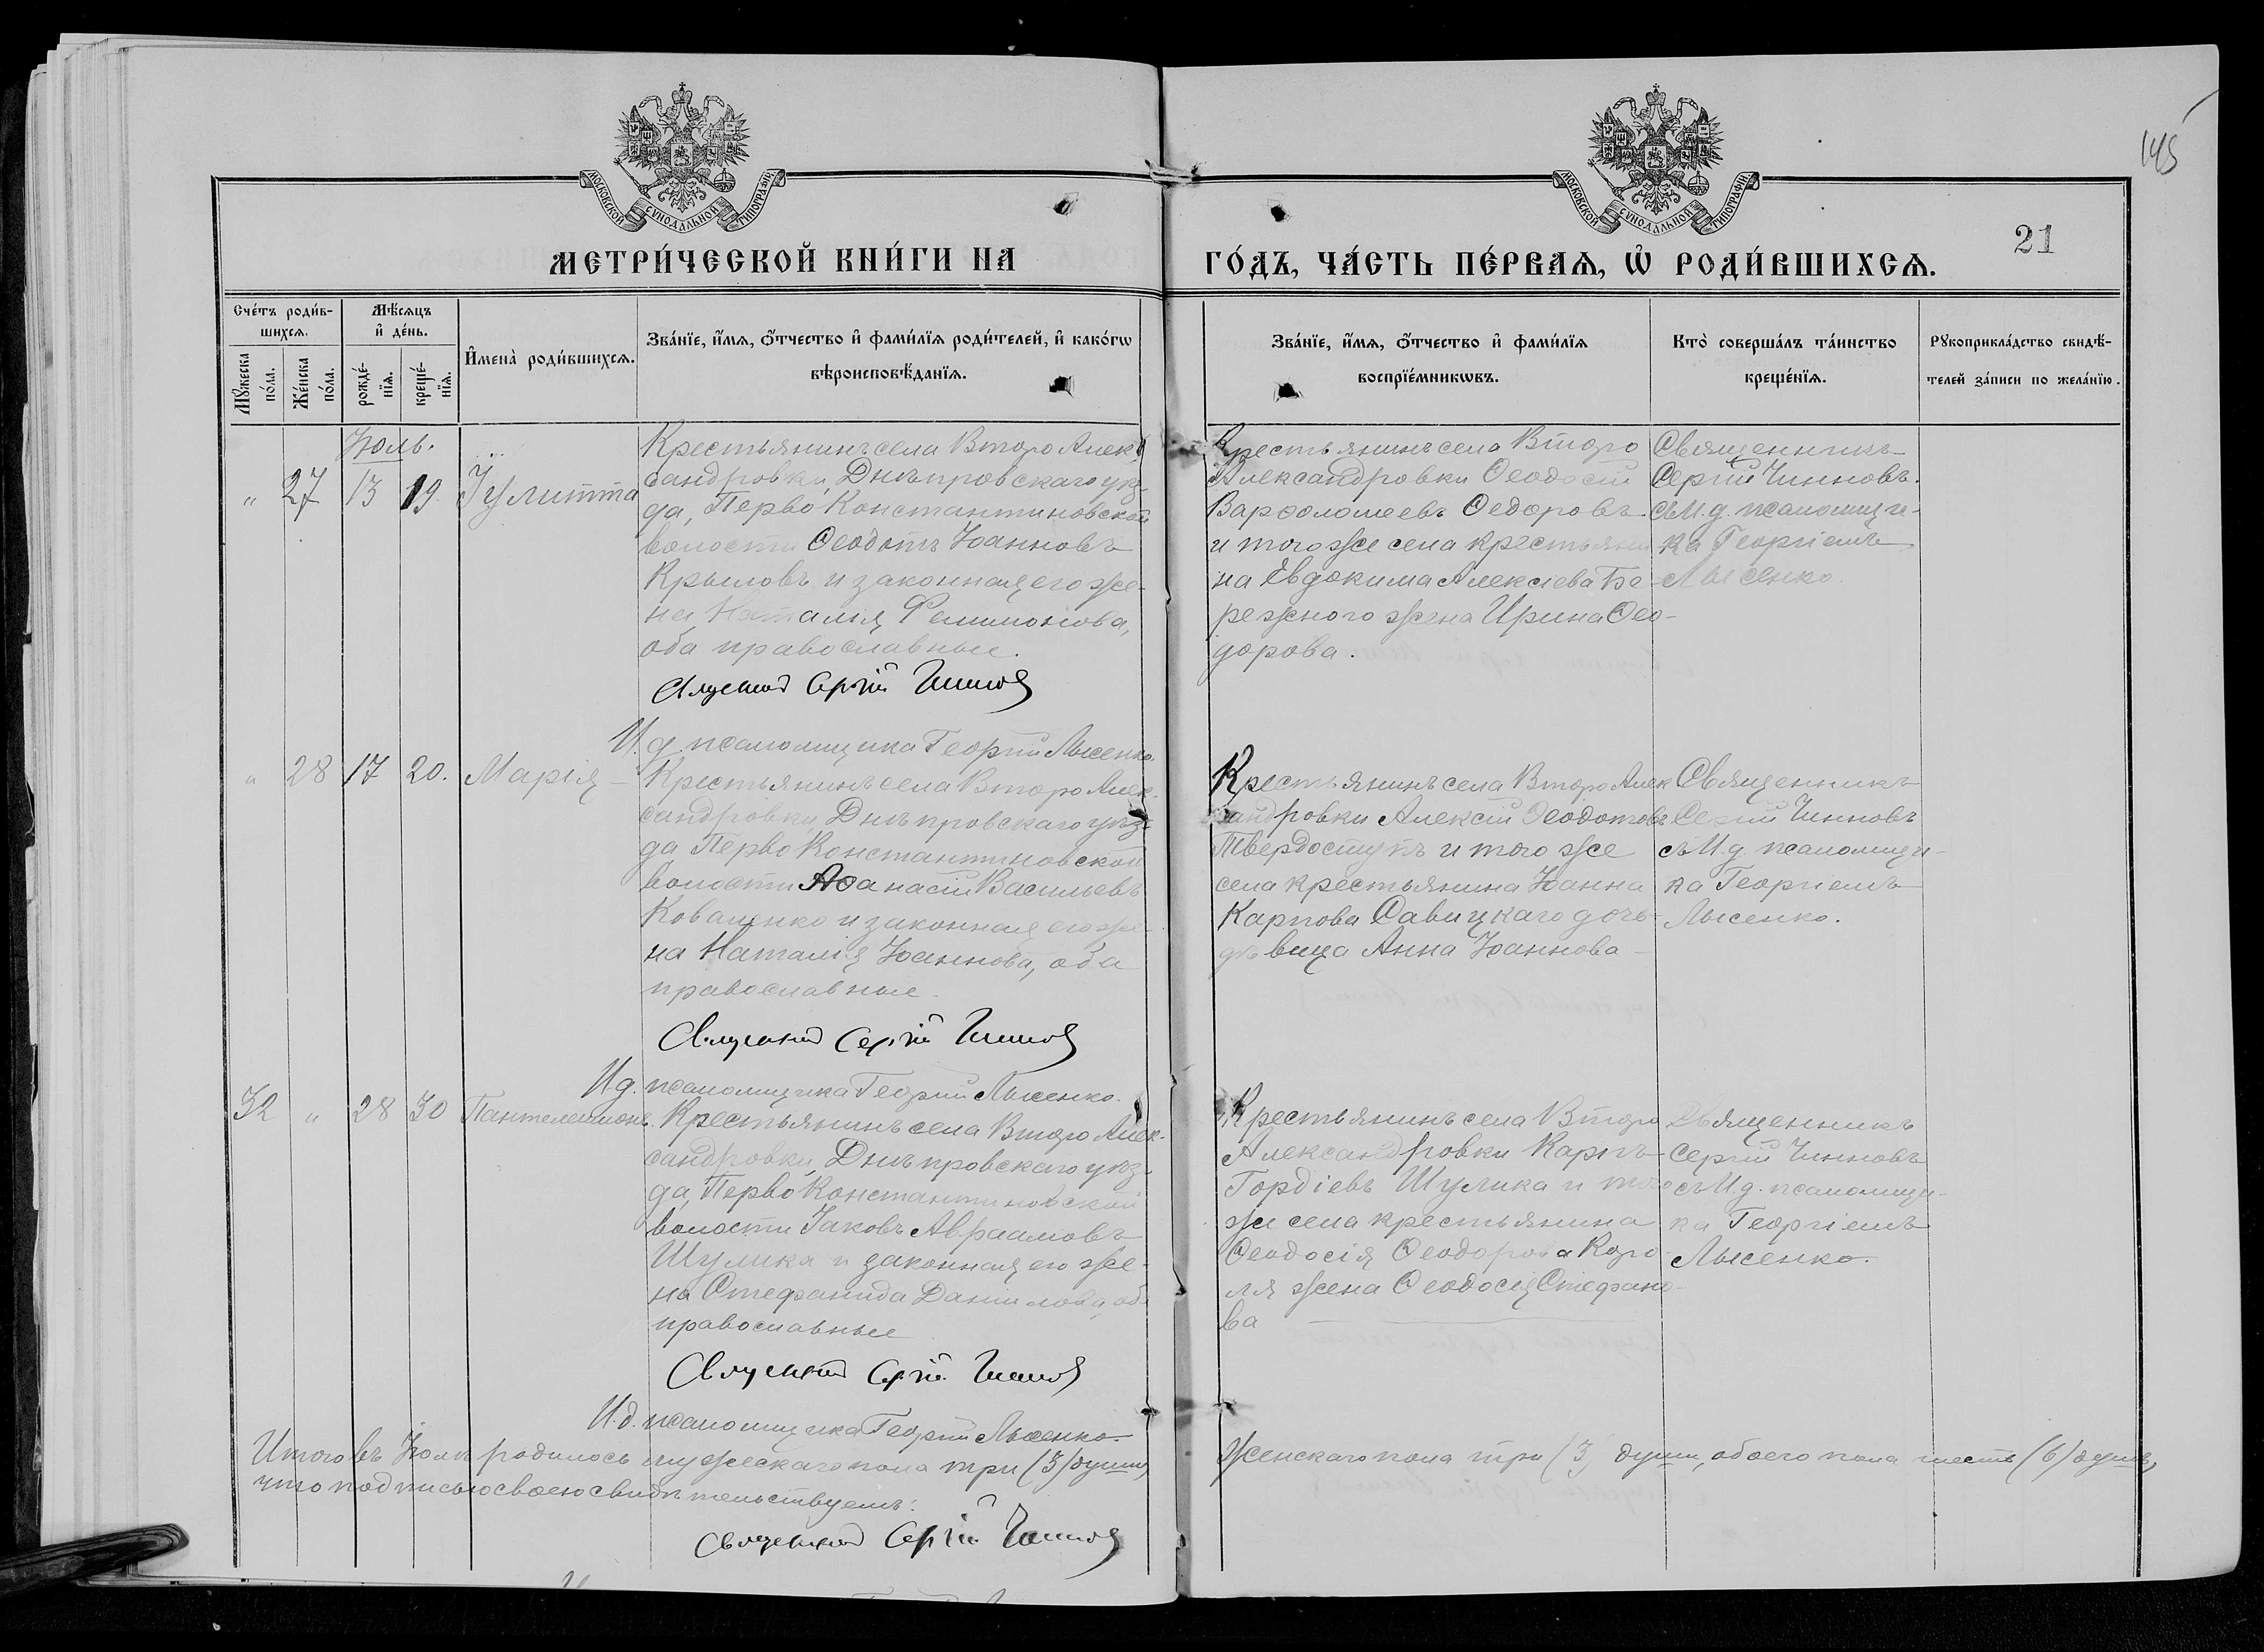 145
21
МОСКОВСКОЙ СУНОДАЛЬНОЙ ТИПОГРАФІИ
МОСКОВСКОЙ СУНОДАЛЬНОЙ ТИПОГРАФІИ
МЕТРИ́ЧЕСКОЙ КНИ́ГИ НА
ГО́ДЪ, ЧА́СТЬ ПЕ́РВАѦ, Ѡ҆ РОДИ́ВШИХСѦ.
Сче́тъ роди́в-
шихсѧ.
Мꙋ́жеска
по́ла.
Же́нска
по́ла.
Мѣ́сѧцъ
и҆ де́нь.
рожде́-
нїѧ.
креще́-
нїѧ.
И҆мена̀ роди́вшихсѧ.
Зва́нїе, и҆́мѧ, ѻ҆́тчество и҆ фами́лїѧ роди́телей, и҆ како́гѡ
вѣроисповѣ́данїѧ.
Зва́нїе, и҆́мѧ, ѻ҆́тчество и҆ фами́лїѧ
воспрїе́мникѡвъ.
Кто̀ соверша́лъ та́инство
креще́нїѧ.
Рꙋкоприкла́дство свидѣ́-
телей за́писи по жела́нїю.
Іюль.
„ 27 13 19. Іулитта
Крестьянинъ села Второ Алек-
сандровки, Днѣпровскаго уѣз-
да, Перво Константиновской
волости Ѳеодотъ Іоанновъ
Крыловъ и законная его же-
на Наталія Филимонова,
оба православные.
Священникъ Сергій Чинновъ
И. д. псаломщика Георгій Лысенко.
Крестьянинъ села Второ
Александровки Ѳеодосій
Варѳоломеевъ Ѳедоровъ
и того же села крестьяни
на Евдокима Алексіева Бе-
режного жена Ирина Ѳео-
дорова.
Священникъ
Сергій Чинновъ.
съ И. д. псаломщи-
ка Георгіемъ
Лысенко.
„ 28 17 20. Марія
Крестьянинъ села Второ Алек-
сандровки, Днѣпровскаго уѣз-
да Перво Константиновской
волости Аѳанасій Васильевъ
Коваленко и законная его же-
на Наталія Іоаннова, оба
православные.
Священникъ Сергій Чинновъ
И. д. псаломщика Георгій Лысенко.
Крестьянинъ села Второ Алек
сандровки Алексій Ѳеодотовъ
Твердоступъ и того же
села крестьянина Іоанна
Карпова Савицкаго дочь
дѣвица Анна Іоаннова
Священникъ
Сергій Чинновъ
съ И. д. псаломщи-
ка Георгіемъ
Лысенко.
32 „ 28 30 Пантелеимонъ.
Крестьянинъ села Второ Алек-
сандровки, Днѣпровскаго уѣз-
да, Перво Константиновской
волости Іаковъ Авраамовъ
Шулика и законная его же-
на Стефанида Данилова, оба
православные
Священникъ Сергій Чинновъ
И. д. псаломщика Георгій Лысенко.
Крестьянинъ села Второ
Александровки Карпъ
Гордіевъ Шулика и того
же села крестьянина
Ѳеодосія Ѳеодорова Коро-
ля жена Ѳеодосія Стефано-
ва
Священникъ
Сергій Чинновъ
съ И. д. псаломщи-
ка Георгіемъ
Лысенко.
Итого въ Іюлѣ родилось мужескаго пола три (3) души, женскаго пола три (3) души, обоего пола шесть (6) душъ,
что подписью своею свидѣтельствуемъ:
Священникъ Сергій Чинновъ